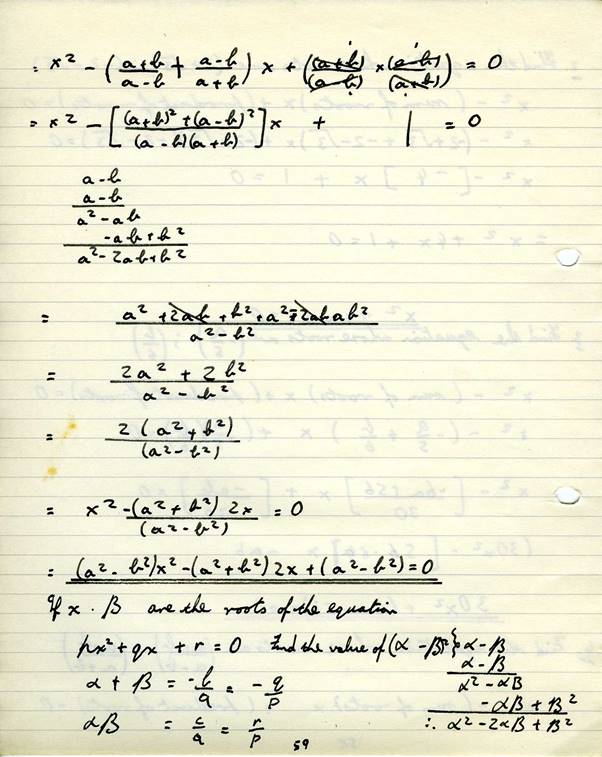 = x² - ((a+b)/(a-b) + (a-b)/(a+b)) x + ((a+b)/(a-b) × (a-b)/(a+b)) = 0
= x² - [((a+b)² + (a-b)²)/((a-b)(a+b))] x + 1 = 0
a-b
a-b
a² - ab
-ab + b²
a² - 2ab + b²
= (a² + 2ab + b² + a² - 2ab + b²)/(a² - b²)
= (2a² + 2b²)/(a² - b²)
= 2(a² + b²)/(a² - b²)
= x² - (a² + b²) 2x/(a² - b²) = 0
= (a² - b²)x² - (a² + b²) 2x + (a² - b²) = 0
If x . β are the roots of the equation
px² + qx + r = 0 Find the value of (α - β)² } α - β
α - β
α² - αβ
- αβ + β²
∴ α² - 2αβ + β²
α + β = -b/a = -q/p
αβ = c/a = r/p
59